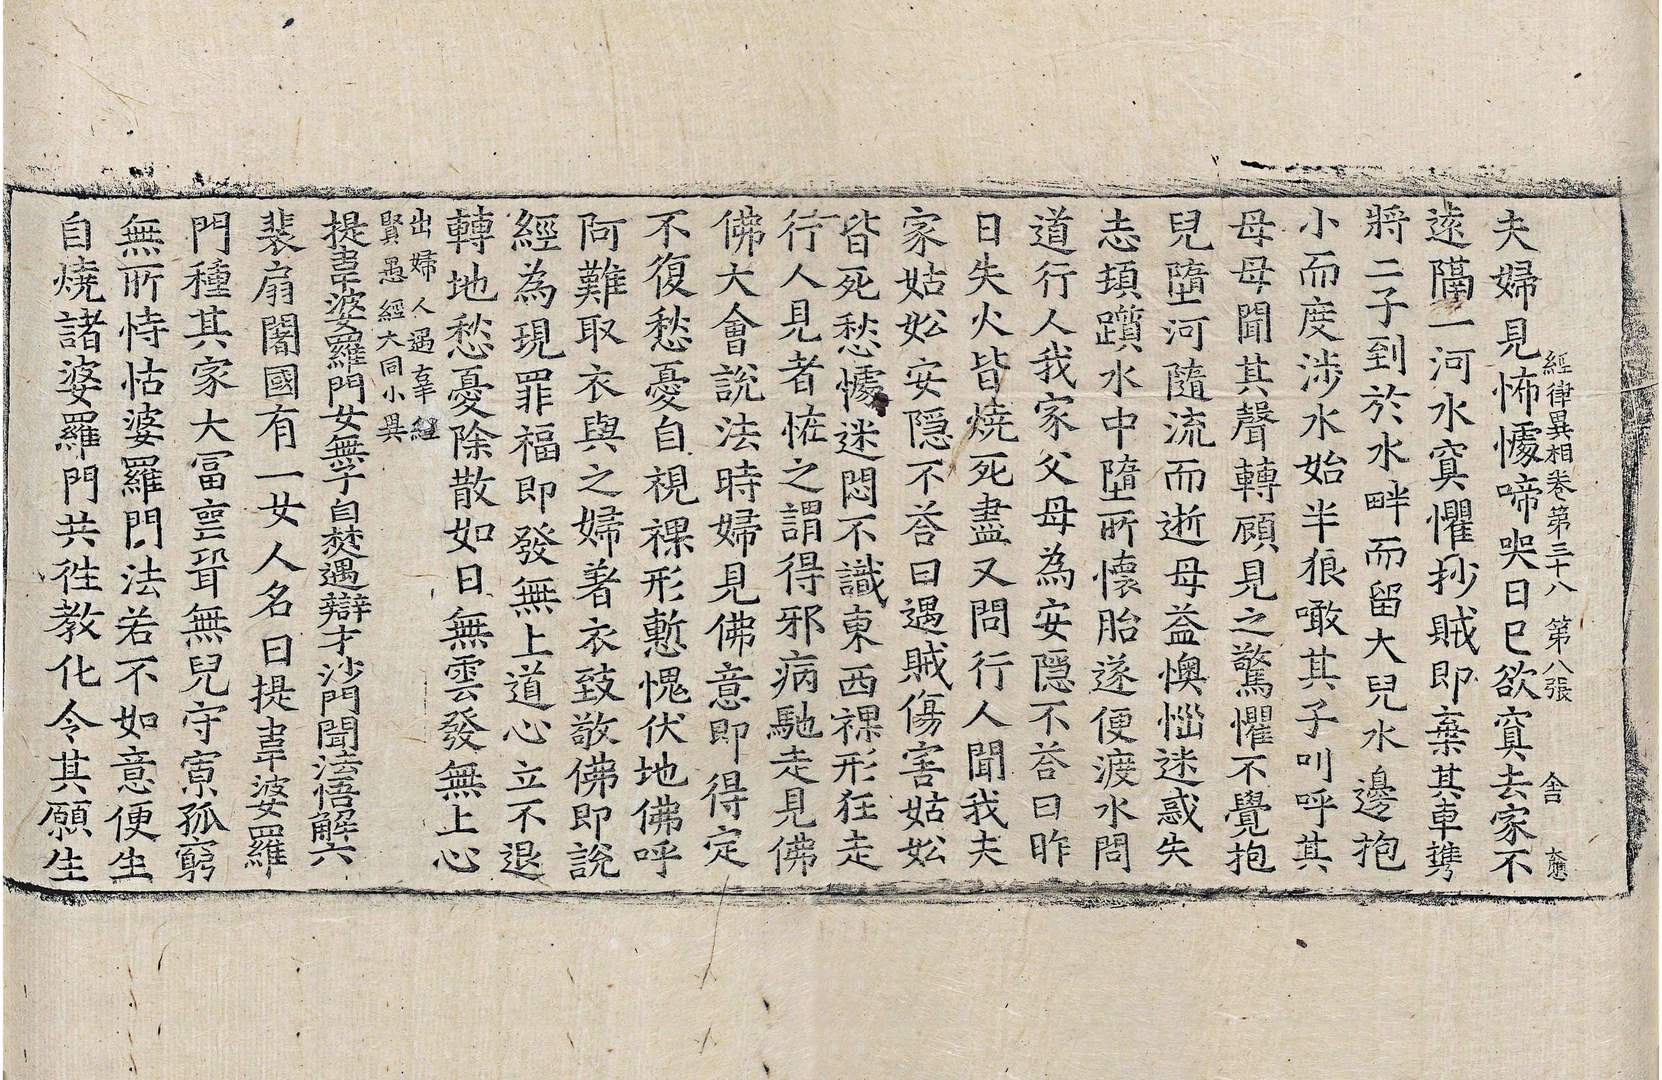 經律異相卷第三十八 第八張 舍
夫婦見怖懅啼哭日已欲冥去家不
遠隔一河水冥懼抄賊即棄其車擕
將二子到於水畔而留大兒水邊抱
小而度涉水始半狼噉其子叫呼其
母母聞其聲轉顧見之驚懼不覺抱
兒墮河隨流而逝母益懊惱迷惑失
志頓躓水中墮所懷胎遂便渡水問
道行人我家父母為安隱不荅曰昨
日失火皆燒死盡又問行人聞我夫
家姑妐安隱不荅曰遇賊傷害姑妐
皆死愁懅迷悶不識東西裸形狂走
行人見者恠之謂得邪病馳走見佛
佛大會說法時婦見佛意即得定
不復愁憂自視裸形慙愧伏地佛呼
阿難取衣與之婦著衣致敬佛即說
經為現罪福即發無上道心立不退
轉地愁憂除散如日無雲發無上心
出婦人遇辜經
賢愚經大同小異
提韋婆羅門女無子自焚遇辯才沙門聞法悟解六
裴扇闍國有一女人名曰提韋婆羅
門種其家大冨壼聓無兒守寡孤窮
無所恃怙婆羅門法若不如意便生
自燒諸婆羅門共徃教化令其願生